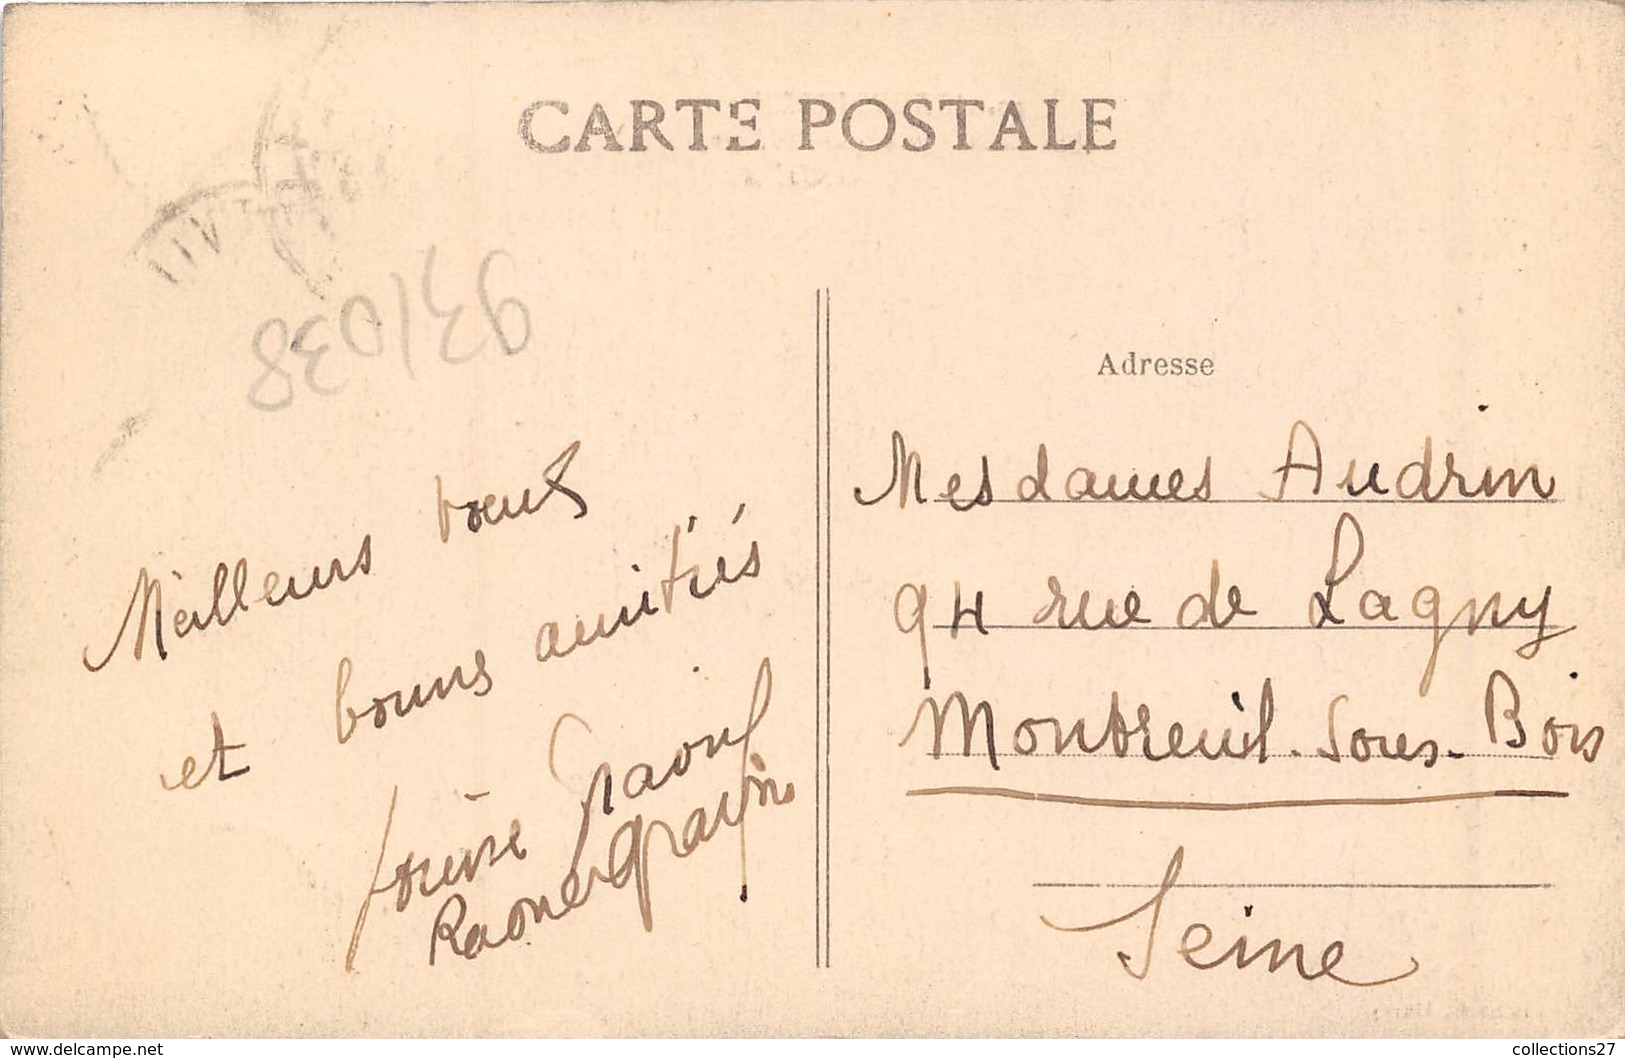 CARTE POSTALE
93/038
Adresse
Meilleurs voeux
et bonnes amitiés
Louise Raoul
Mesdames Audrin
94 rue de Lagny
Montreuil-Sous-Bois
Seine
www.delcampe.net
collections27